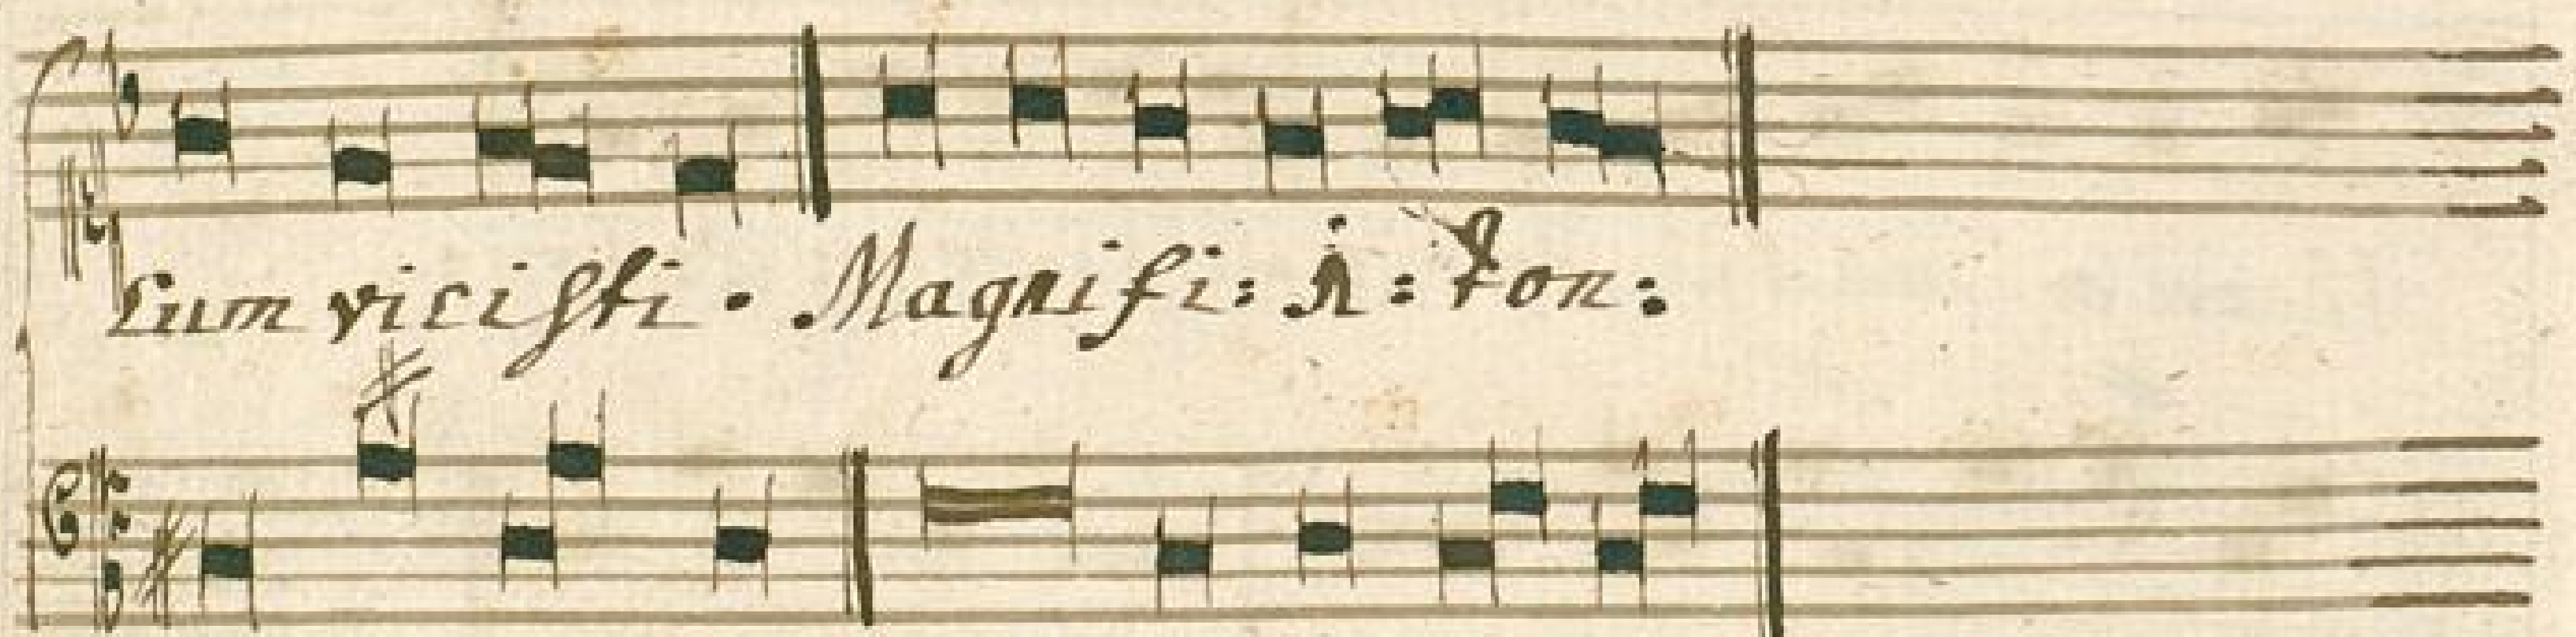 Cum vicisti. Magnifi: i: ton: